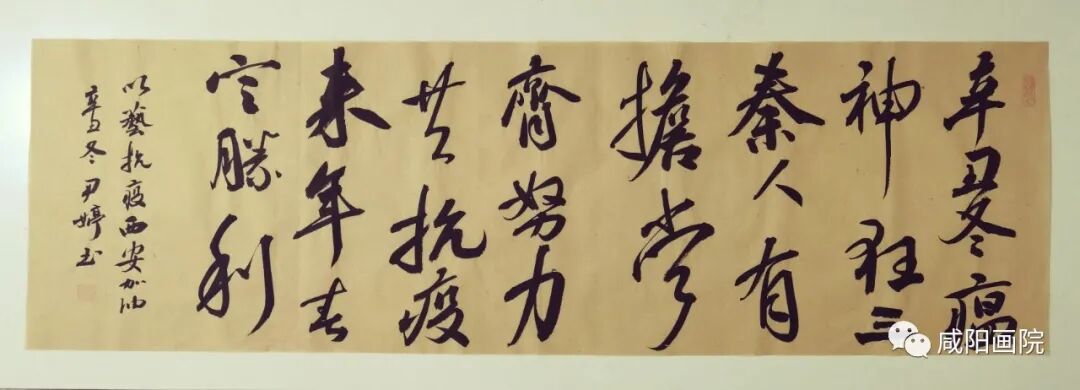 辛丑冬瘟
神狂三
秦人有
擔當
齊努力
共抗疫
来年春
定勝利
以藝抗疫西安加油
辛丑冬尹婷书
咸阳画院